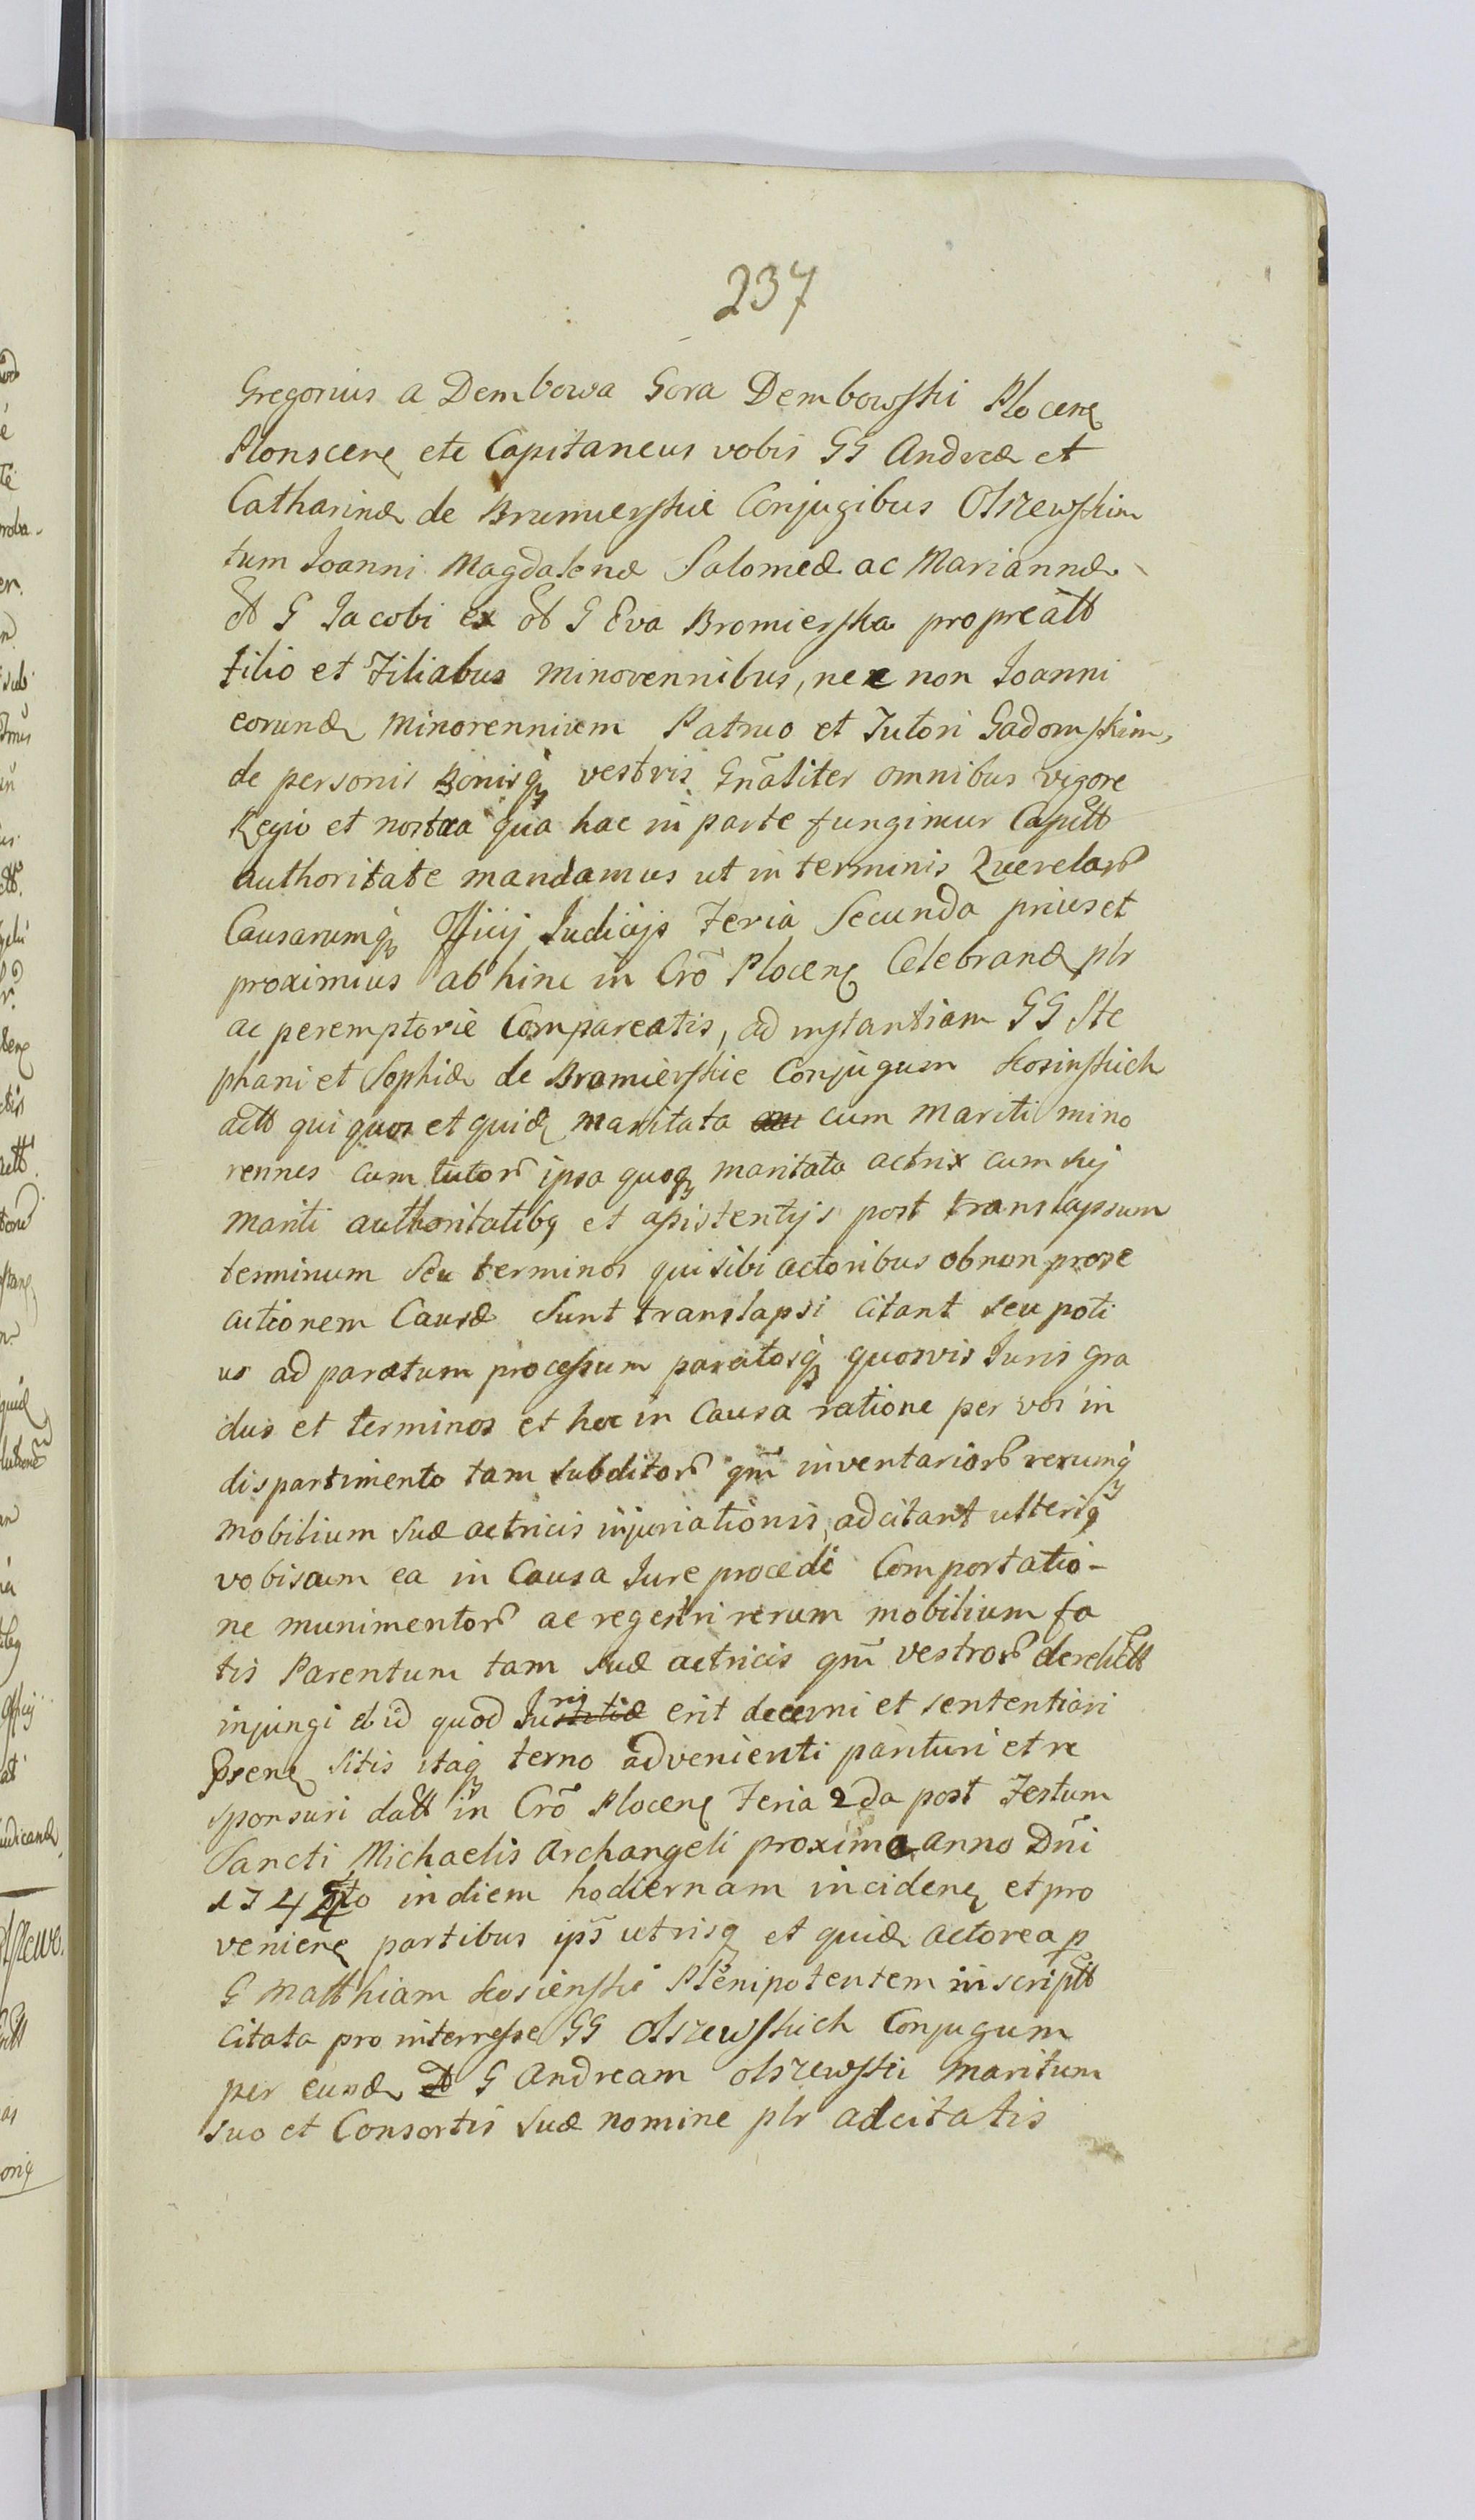 237
Gregorius a Dembowa Gora Dembowski Plocen
Plonscen etc Capitaneus vobis GG Andreæ et
Catharinæ de Bromierskie Conjugibus Olszewskim
tum Joanni Magdalenæ Salomeæ ac Mariannæ
olt G Jacobi ex olt G Eva Bromierska propreatt
filio et Filiabus minorennibus, nec non Joanni
eorund minorennium Patruo et Tutori Gadomskim,
de personis Bonisq vestris Gnãliter omnibus vigore
Regio et nostra qua hac in parte fungimur Capitt
authoritate mandamus ut in terminis Querelar
Causarumq Officij Judicijs Feria Secunda prius et
proximius ab hinc in Crõ Plocen Celebrand plr
ac peremptorie Compareatis, ad instantiam GG Ste
phani et Sophiæ de Bromierskie Conjugum Kosinskich
actt qui quos et quid maritata cum mariti mino
rennes cum tutor ipsa quoq maritata actrix cum sui
mariti authoritatibq et assistentijs post translapsum
terminum seu terminos qui sibi actoribus ob non prose
cutionem Causæ sunt translapsi citant seu poti
us ad paratum processum paratosq quosvis Juris gra
dus et terminos et hoc in Causa ratione per vos in
dispartimento tam subditor qm inventarior rerumq
mobilium suæ actricis injuriationis, adcitant ulteriq
vobiscum ea in Causa Jure procedi Comportatio-
ne munimentor ac regestri rerum mobilium fa
tis Parentum tam suæ actricis qm vestror derelictt
injungi et id quod Juris erit decerni et sententiari
Psen sitis itaq terno advenienti parituri et re
sponsuri datt in Crõ Plocen Feria 2da post Festum
Sancti Michaelis Archangeli proxima Anno Dni
174 to in diem hodiernam inciden et pro
venien partibus ips utrisq et quid actorea p
G Matthiam Kosienski Plenipotentem inscriptt
citata pro interresse GG Olszewskich Conjugum
per eund G Andream Olszewski maritum
suo et Consortis suæ nomine plr adcitatis